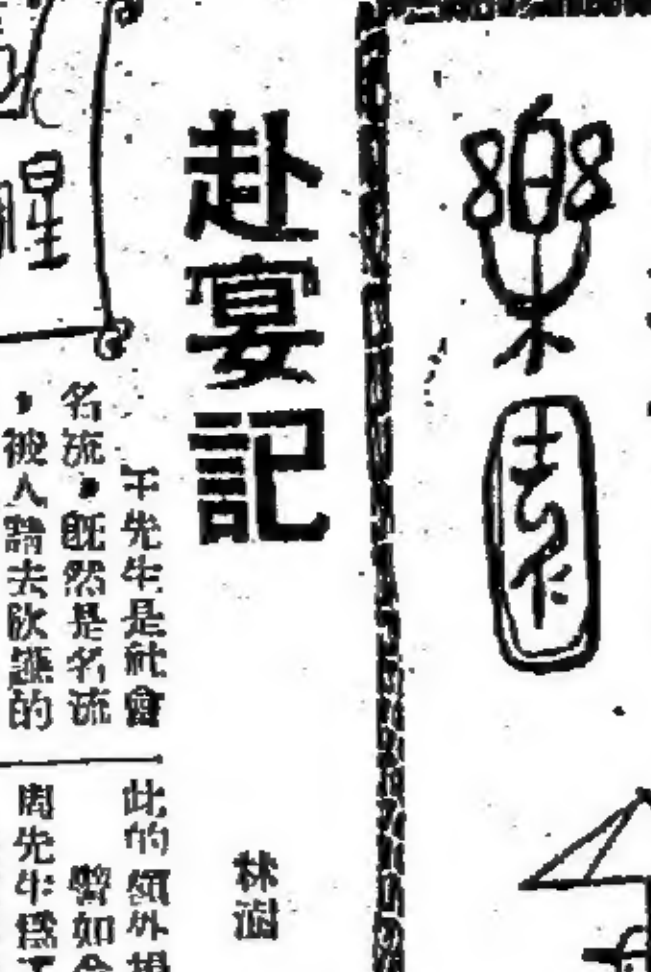 樂園
赴宴記
林
先生是社會
名流，既然是名流
，被人請去飲讌的
此的額外
譬如
周先生
醒